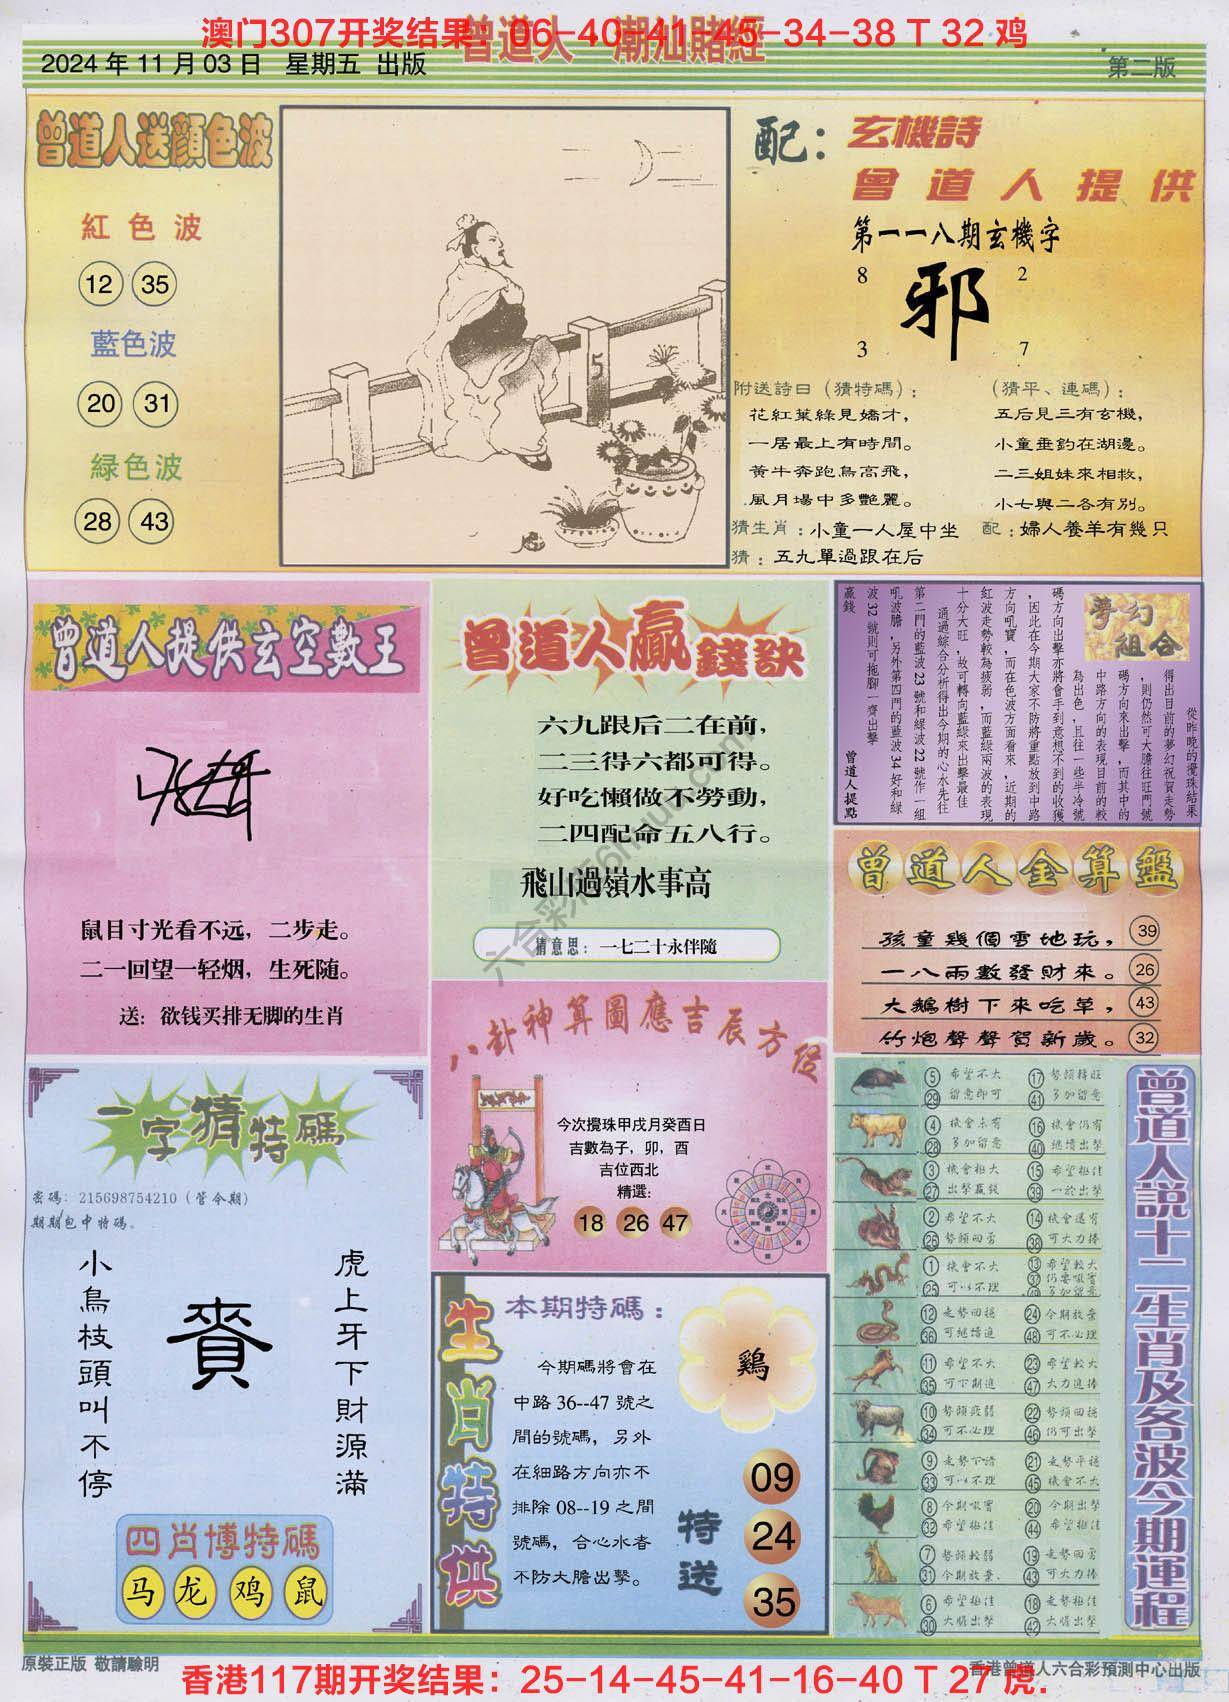 澳门307开奖结果：06-40-41-45-34-38 T 32 鸡
曾道人 潮汕賭經
2024 年 11 月 03 日 星期五 出版
第二版
曾道人送顏色波
紅色波
12 35
藍色波
20 31
緑色波
28 43
5
配：
玄機詩
曾道人提供
第一一八期玄機字
8 2
邪
3 7
附送詩曰（猜特碼）：
花紅葉綠見嬌才，
一居最上有時間。
黃牛奔跑鳥高飛，
風月場中多艷麗。
（猜平、連碼）：
五后見三有玄機，
小童垂釣在湖邊。
二三姐妹來相救，
小七與二各有別。
猜生肖：小童一人屋中坐
配：婦人養羊有幾只
猜：五九單過跟在后
曾道人提供玄空數王
鼠目寸光看不远，二步走。
二一回望一轻烟，生死随。
送：欲钱买排无脚的生肖
曾道人贏錢訣
六九跟后二在前，
二三得六都可得。
好吃懶做不勞動，
二四配命五八行。
飛山過嶺水事高
猜意思：一七二十永伴隨
六合彩库56huc.com
夢幻組合
從昨晚的攪珠結果
得出目前的夢幻祝賀走勢
，則仍然可大膽往旺門號
碼方向來出擊，而其中的
中路方向的表現目前的較
為出色，且往一些半冷號
碼方向出擊亦將會手到意想不到的收獲
，因此在今期大家不防將重點放到中路
方向吼寶，而在色波方面看來，近期的
紅波走勢較為疲弱，而藍綠兩波的表現
十分大旺，故可轉向藍綠來出擊最佳
通過綜合分析得出今期的心水先往
第二門的藍波 23 號和綠波 22 號作一組
吼波膽，另外第四門的藍波 34 好和綠
波 32 號則可拖腳一齊出擊
贏錢
曾道人提點
曾道人金算盤
孩童幾個雪地玩，39
一八兩數發財來。26
大鵝樹下來吃草，43
竹炮聲聲賀新歲。32
八卦神算圖應吉辰方位
今次攪珠甲戌月癸酉日
吉數為子，卯，酉
吉位西北
精選：
18 26 47
一字猜特碼
密碼：215698754210（管令期）
期期包中特碼。
虎上牙下財源滿
賚
小鳥枝頭叫不停
四肖博特碼
马 龙 鸡 鼠
生肖特供
本期特碼：
鷄
今期碼將會在
中路 36--47 號之
間的號碼，另外
在細路方向亦不
排除 08--19 之間
號碼，合心水者
不防大膽出擊。
特送
09
24
35
曾道人説十二生肖及各波今期運程
5 希望不大 17 勢頭轉旺
29 留意即可 41 多加留意
4 機會未有 16 機會仍有
28 多加留意 40 繼續出擊
3 機會極大 15 希望極佳
27 出擊贏錢 39 一於出擊
2 希望不大 14 機會還有
26 勢頭回勇 38 可大力捧
1 機會不大 13 希望較大
25 可以不理
12 走勢回穩 24 今期放棄
36 可繼續追 48 可不必理
11 希望不大 23 希望較大
35 可下期追 47 大力追捧
10 勢頭疲弱 22 勢頭回穩
34 可不必理 46 仍可出擊
9 走勢下滑 21 走勢平穩
33 可以不理 45 機會不大
8 今期吼寶 20 今期出擊
32 希望極佳 44 希望極佳
7 勢頭較弱 19 走勢回勇
31 今期放棄 43 可大力捧
6 希望極佳 18 走勢極佳
30 大膽出擊 42 大膽出擊
原裝正版 敬請驗明
香港曾道人六合彩預測中心出版
香港117期开奖结果：25-14-45-41-16-40 T 27 虎.